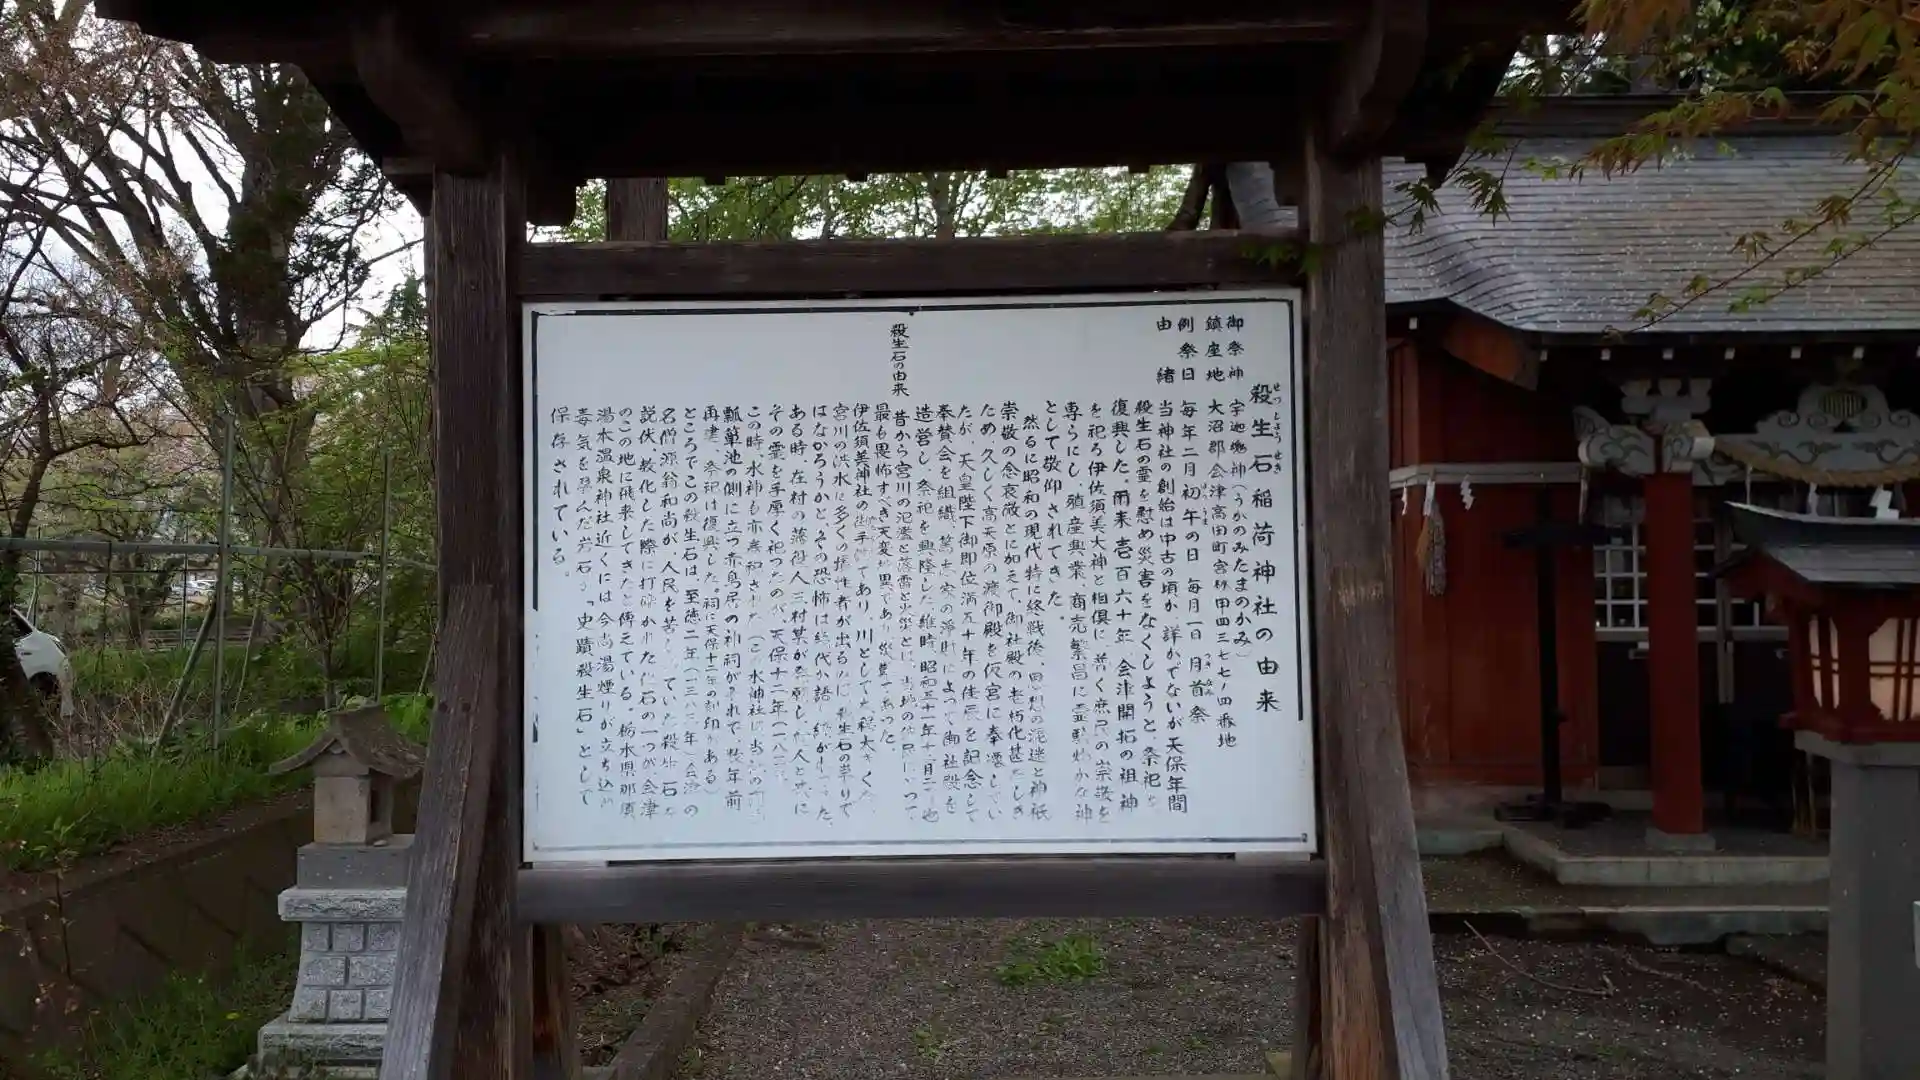 殺生石稲荷神社の由来
せっしょう せき
御祭神 宇迦魂神(うかのみたまのかみ)
鎮座地 大沼郡会津高田町宮林甲四三七七ノ四番地
例祭日 毎年二月初午の日 毎月一日 月首祭
由緒 当神社の創始は中古の頃か、詳かでないが天保年間
殺生石の霊を慰め災害をなくしようと、祭祀を
復興した。爾来壱百六十年、会津開拓の祖神
を祀ろ伊佐須美大神と相倶に、普く庶民の崇敬を
専らにし、殖産興業、商売繁昌に霊験 かな神
として敬仰されてきた。
然るに昭和の現代特に終戦後、 思想の混迷と神祇
崇敬の念衰微とに加えて、御社殿の老朽化甚だしき
ため、久しく高天原の渡御殿を仮宮に奉遷してい
たが、天皇陛下御即位満五十年の佳辰を記念して
奉賛会を組織、 の浄財によって御社殿を
造営し、祭祀を興隆した。維時、昭和五十一年十一月二 也
殺生石の由来
昔から宮川の氾濫と落雷と火災とは、当地の住民にとって
最も畏怖すべき天変 異であり災 であった
伊佐須美神社の 手 であり、川としても大 き
宮川の洪水に多くの犠牲者が出るのは 殺生石の祟りで
はなかろうかと、その恐怖は 代か語り 続が た、
ある時、在村の 役人、三村某が し、 人と共に
その霊を手厚く祀ったのが、天保十二年(一八
この時、水神も亦 和された(この水神社は当
瓢箪池の側に立つ赤鳥居の神祠が れて数年前
再建、祭祀は復興した。祠に天保十二年の刻印がある)
ところでこの殺生石は、至徳二年(一三八 年)会津の
名僧源翁和尚が、人民を苦し ていた殺生石を
説伏、教化した際に打砕かれた 石の一つが会津
のこの地に飛来してきたと傳えている。栃木県那須
湯本温泉神社近くには今尚湯煙りが立ち込
毒気を孕んだ岩石が「史蹟殺生石」として
保存されている。